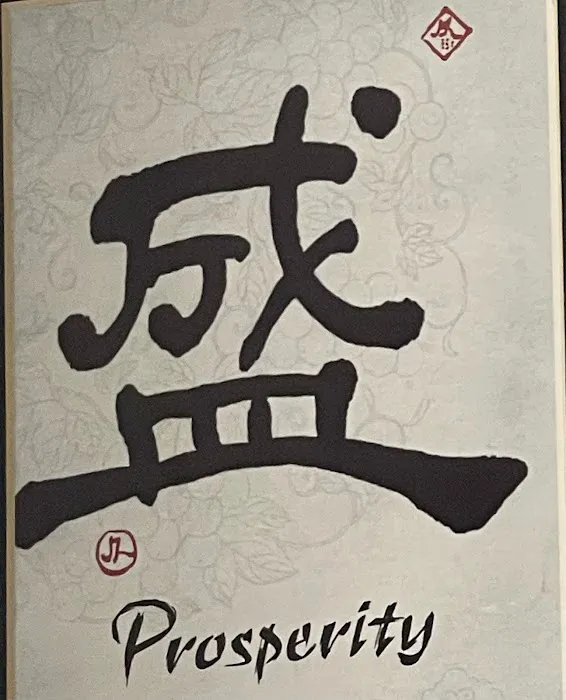 盛
Prosperity